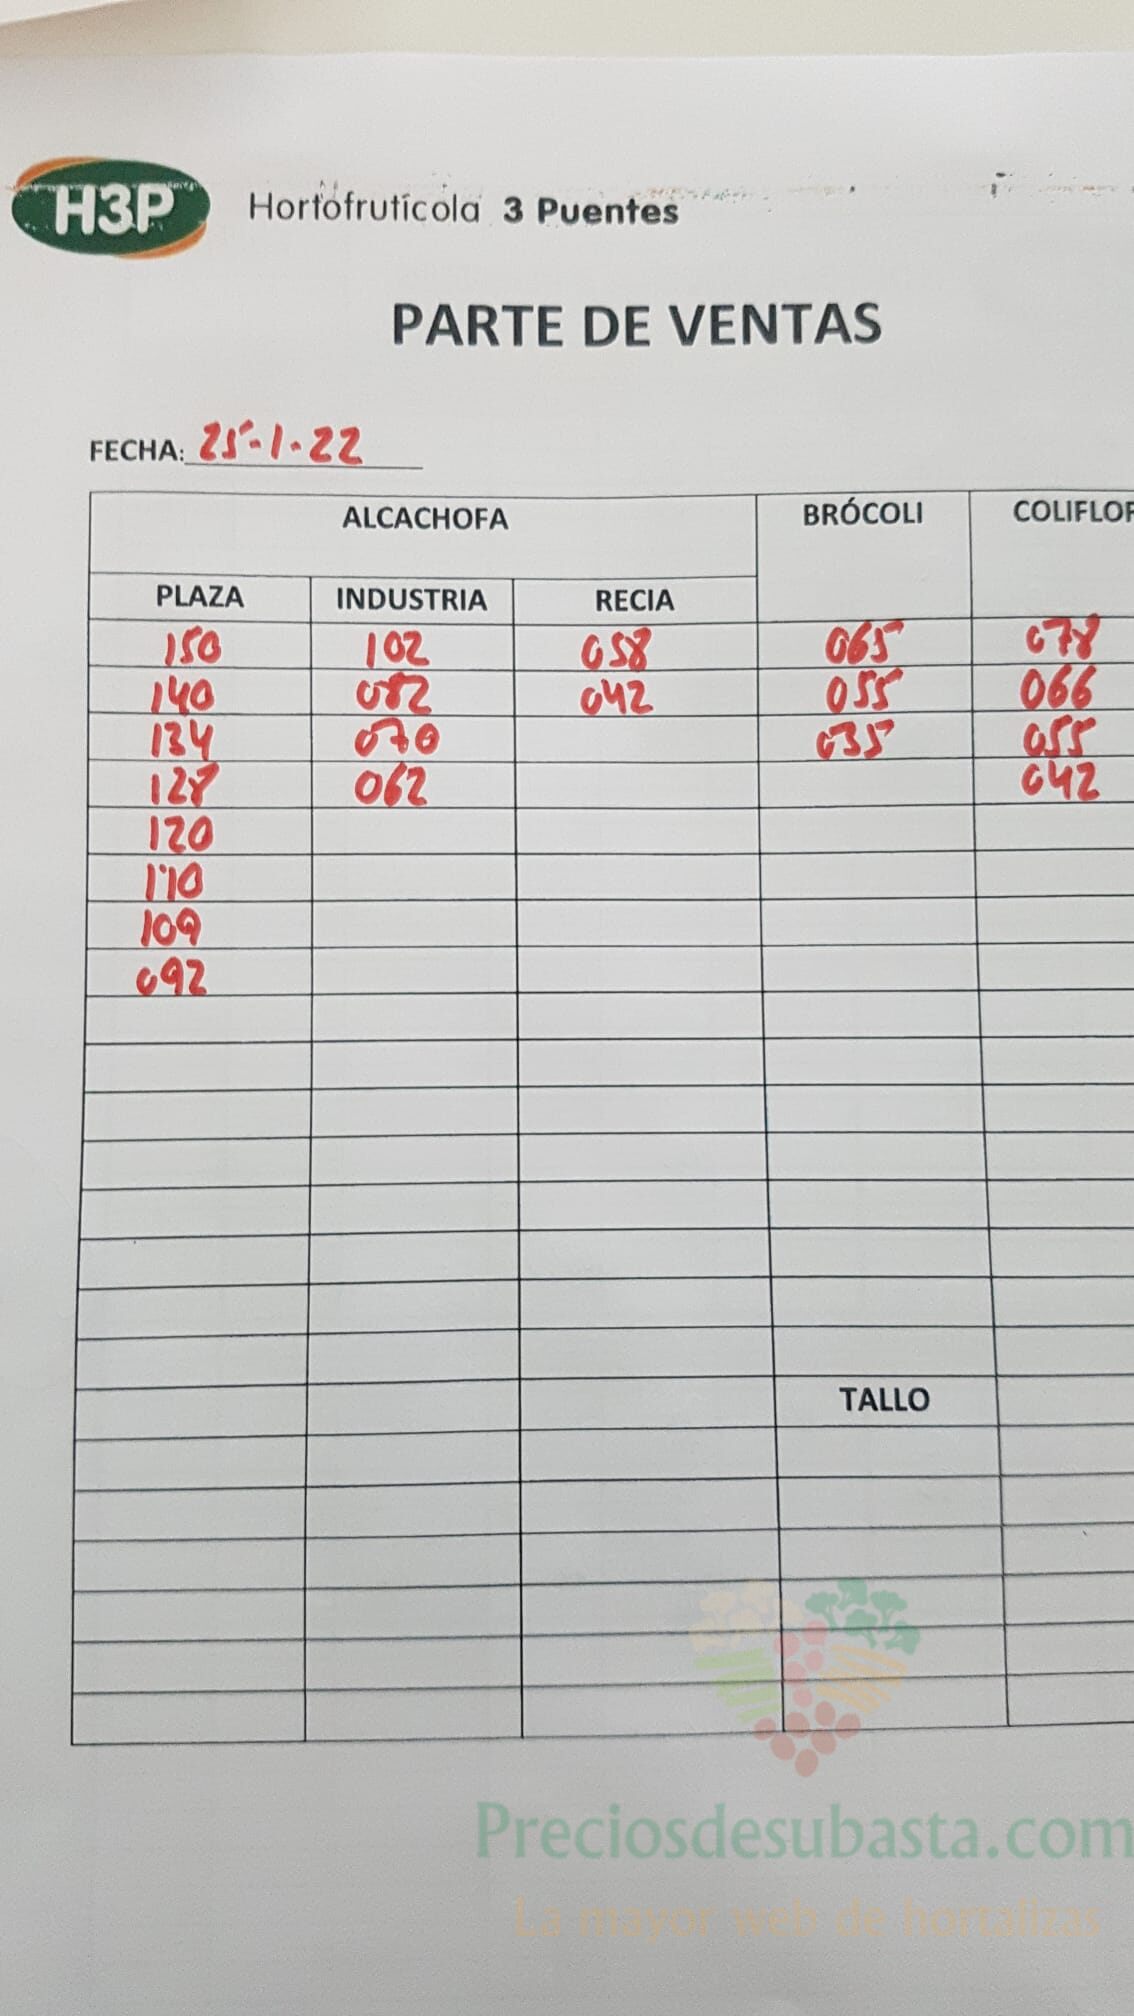 H3P Hortofrutícola 3 Puentes
PARTE DE VENTAS
FECHA: 25-1-22
ALCACHOFA BRÓCOLI COLIFLOR
PLAZA INDUSTRIA RECIA
150 102 058 065 078
140 082 042 055 066
134 070 035 055
128 062 042
120
110
109
092
TALLO
Preciosdesubasta.com
La mayor web de hortalizas